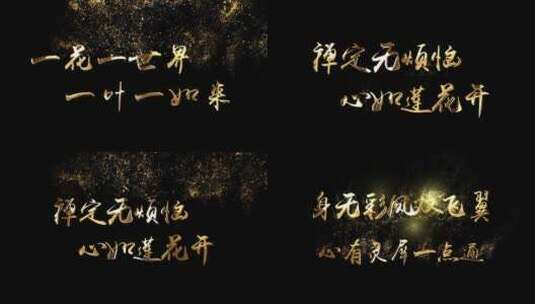 一花一世界
一叶一如来
禅定无烦恼
心如莲花开
禅定无烦恼
心如莲花开
身无彩凤双飞翼
心有灵犀一点通